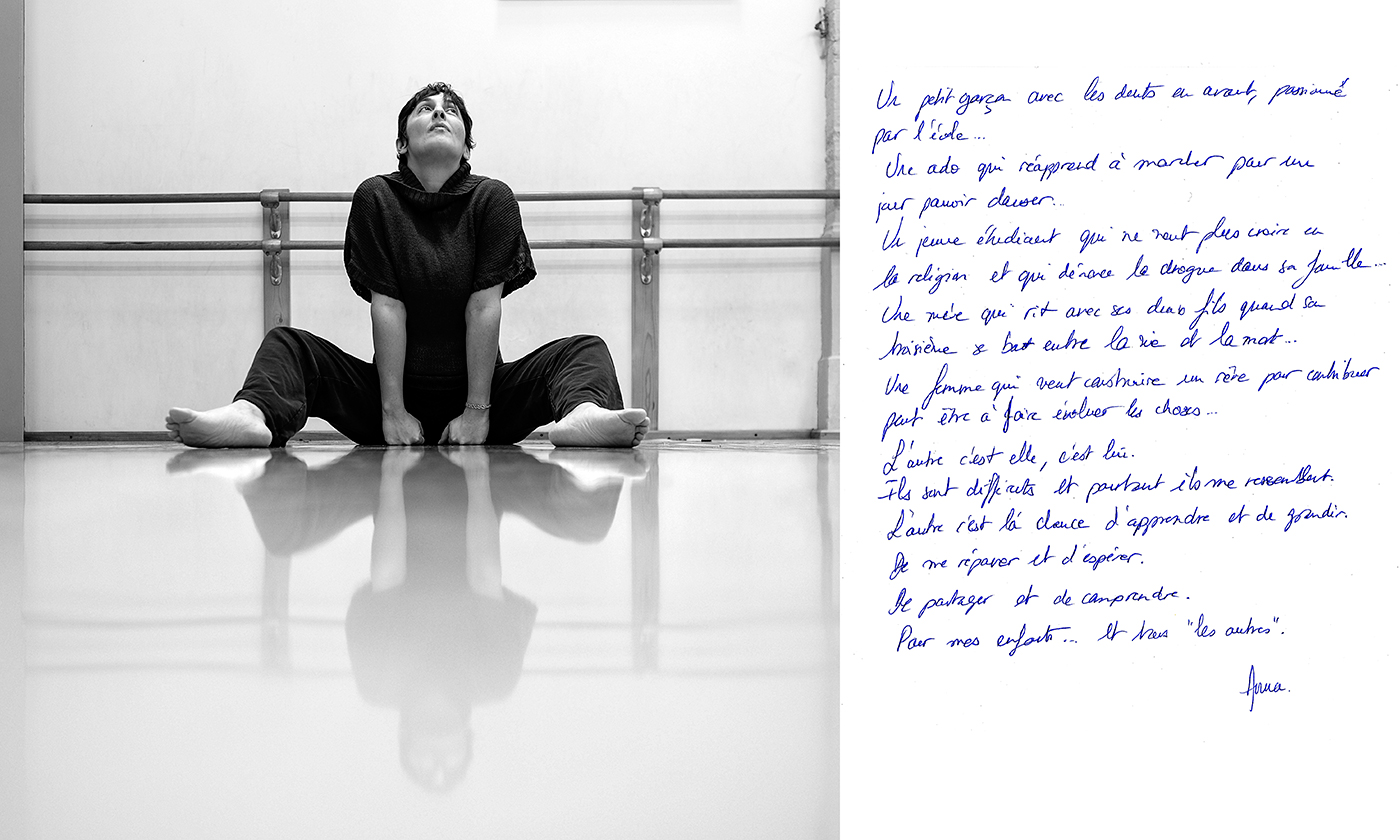 Un petit garçon avec les dents en avant, passionné
par l'école...
Une ado qui réapprend à marcher pour un
jour pouvoir danser.
Un jeune étudiant qui ne veut plus croire en
la religion et qui dénonce la drogue dans sa famille...
Une mère qui rit avec ses deux fils quand son
troisième se bat entre la vie et la mort...
Une femme qui veut construire un rêve pour contribuer
peut être à faire évoluer les choses...
L'autre c'est elle, c'est lui.
Ils sont différents et pourtant ils me ressemblent.
L'autre c'est la chance d'apprendre et de grandir.
De me réparer et d'espérer.
De partager et de comprendre.
Pour mes enfants... et tous "les autres".